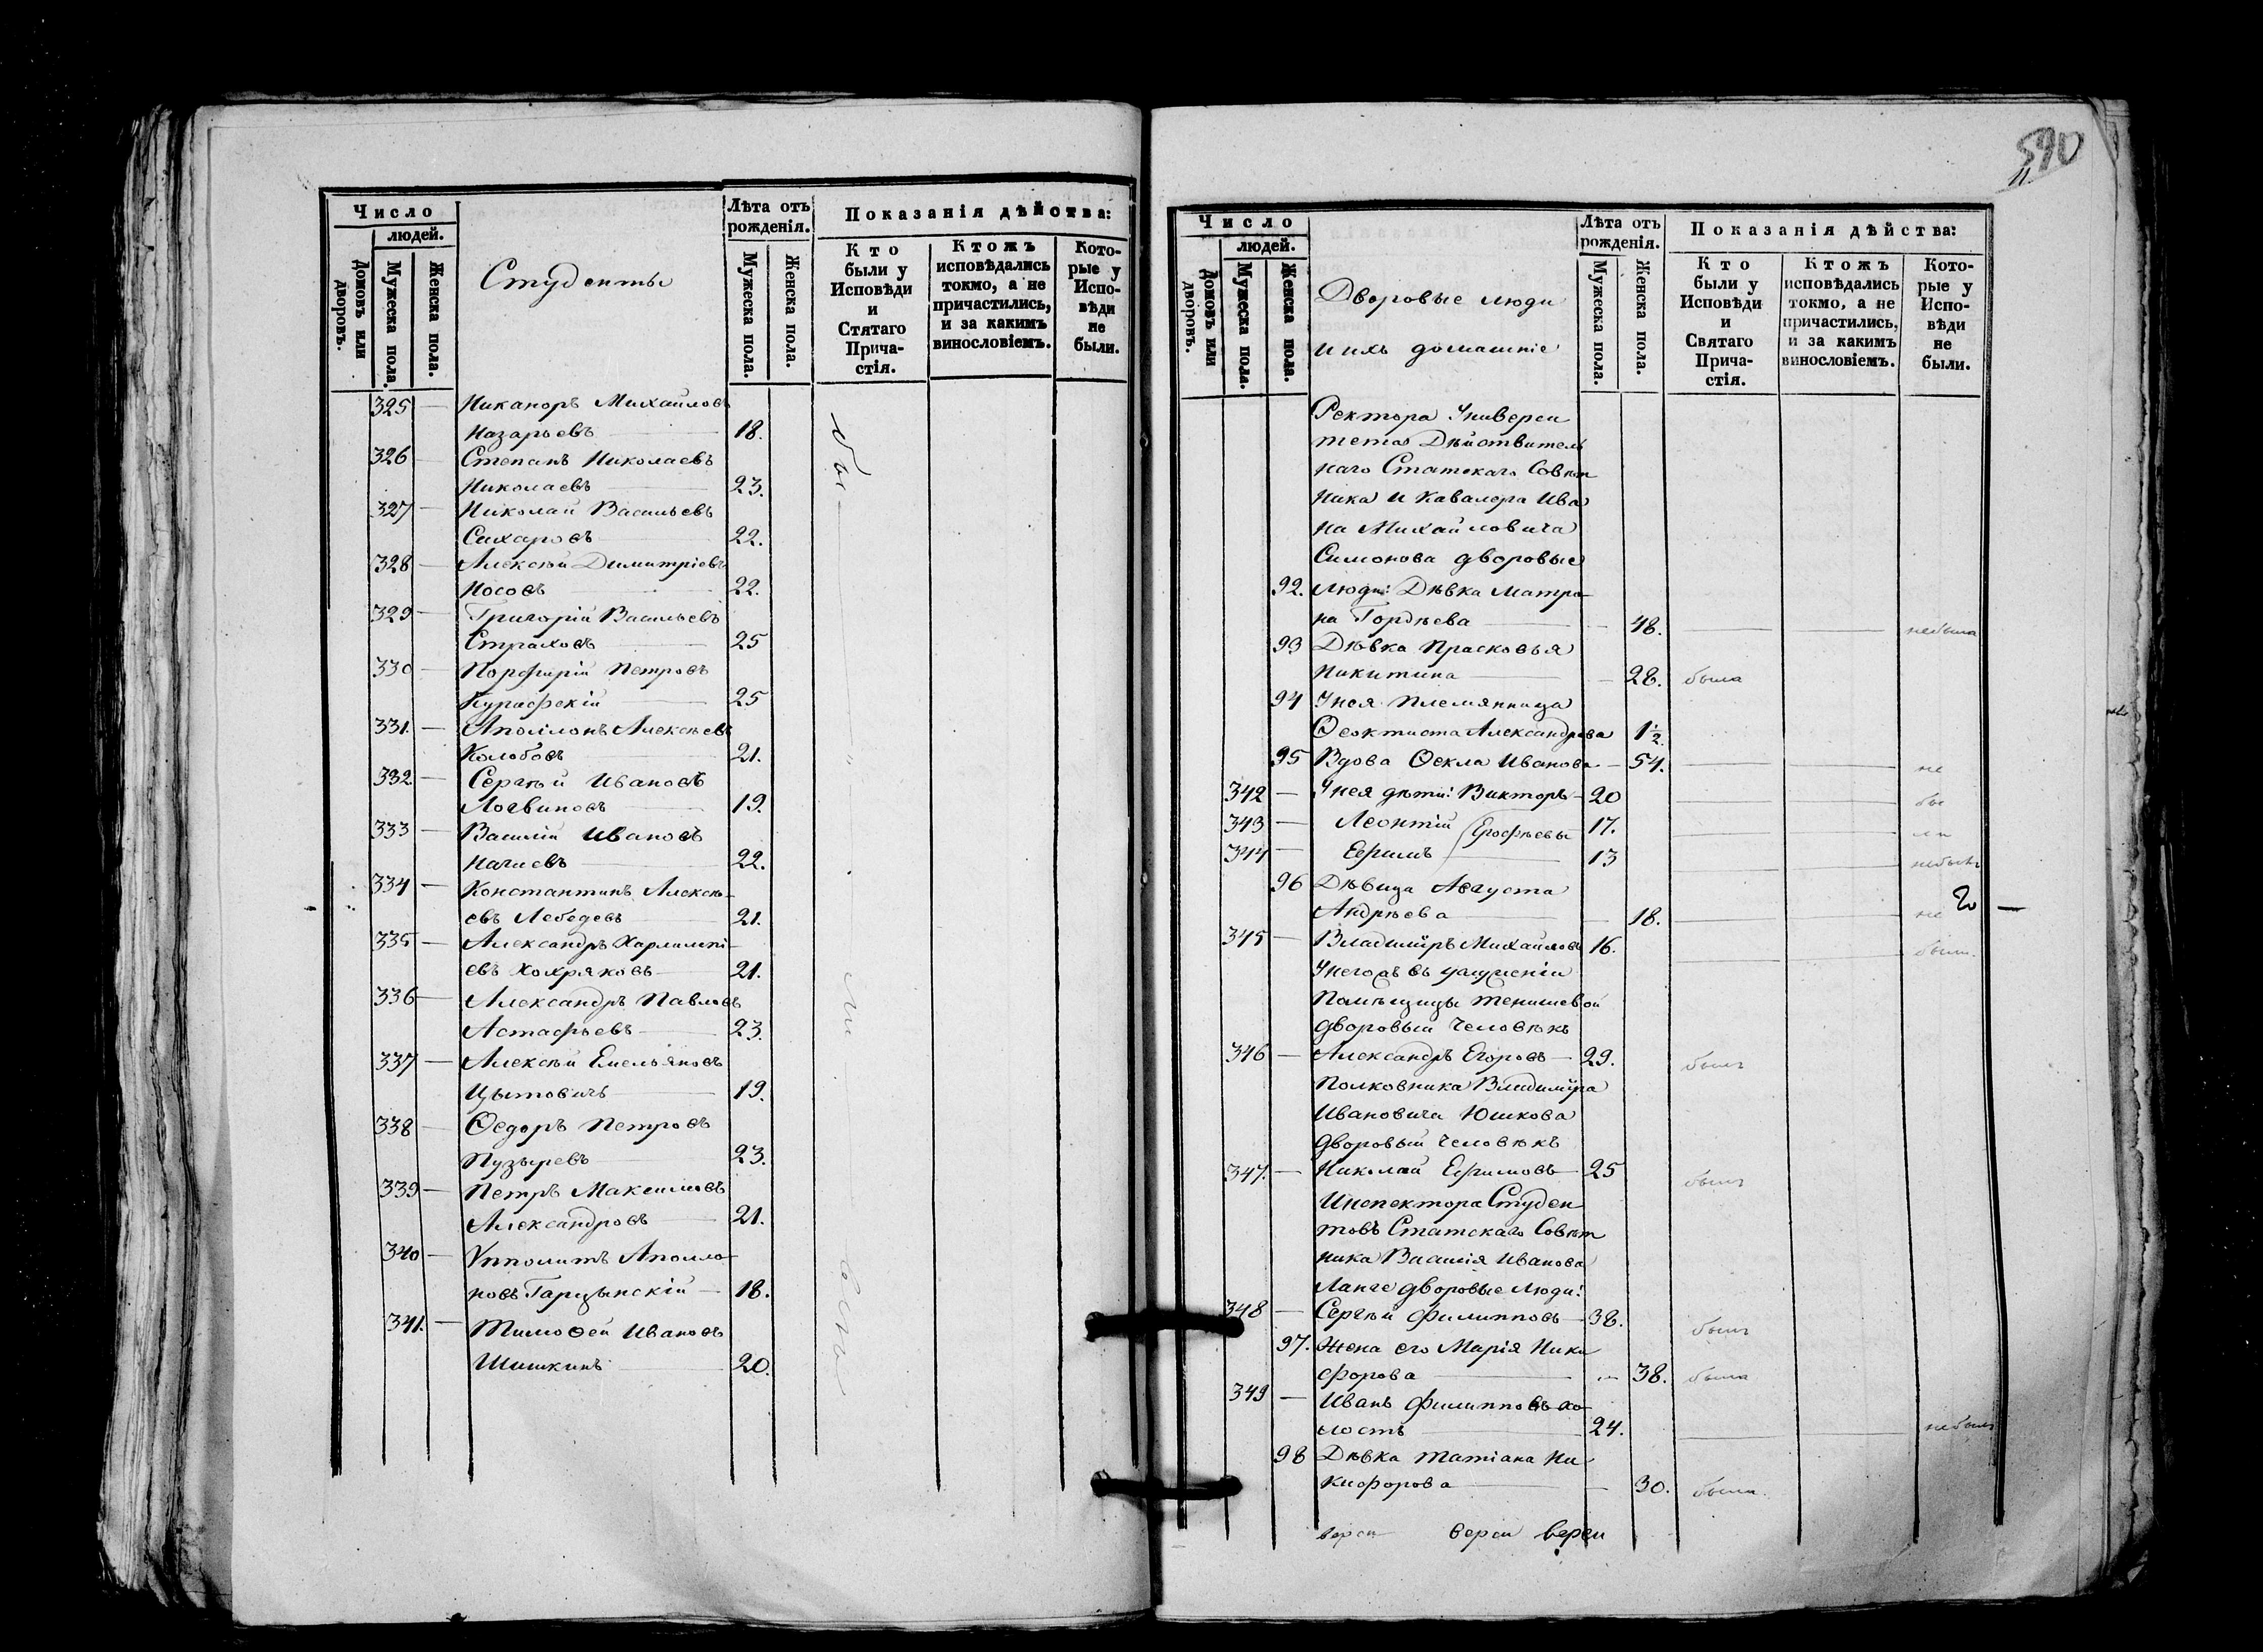 Число
людей.
Домовъ или дворовъ.
Мужеска пола.
Женска пола.
Студенты
Лѣта отъ рожденія.
Мужеска пола.
Женска пола.
Показанія дѣйства:
Кто были у Исповѣди и Стятаго Прича-стія.
Ктожъ исповѣдались токмо, а не причастились, и за какимъ винословіемъ.
Кото-рые у Испо-вѣди не были.
325 — Никаноръ Михайловъ
Назарьевъ 18.
326 Степанъ Николаевъ
Николаевъ 23.
327 — Николай Васильевъ
Сахаровъ 22.
328 — Алексѣй Димитріевъ
Носовъ 22.
329 — Григорій Васильевъ
Страховъ 25
330 — Порфирій Петровъ
25
331. — Аполлонъ Алексѣевъ
Колобовъ 21.
332. — Сергѣй Ивановъ
Логвиновъ 19.
333 — Василій Ивановъ
22.
334 — Константинъ Алексѣ-
евъ Лебедевъ 21.
335 — Александръ Харлампі-
евъ Хохряковъ 21.
336 — Александръ Павловъ
Астафьевъ 23.
337 — Алексѣй Емельяновъ
Цытовичъ 19.
338 — Ѳедоръ Петровъ
Пузыревъ 23.
339 — Петръ Максимовъ
Александровъ 21.
340 — Ипполитъ Аполло-
новъ Гарцынскій 18.
341. — Тимоѳей Ивановъ
Шишкинъ 20.
бы
ли
590
Число
людей.
Домовъ или дворовъ.
Мужеска пола.
Женска пола.
Дворовые люди
и ихъ домашніе
Лѣта отъ рожденія.
Мужеска пола.
Женска пола.
Показанія дѣйства:
Кто были у Исповѣди и Святаго Прича-стія.
Ктожъ исповѣдались токмо, а не причастились, и за какимъ винословіемъ.
Кото-рые у Испо-вѣди не были.
Ректора Универси
тета Дѣйствитель
наго Статскаго Совѣт
ника и Кавалера Ива
на Михайловича
Симонова дворовые
92. люди: Дѣвка Матре
на Гордѣева — 48. небыла
93 Дѣвка Прасковья
Никитина — 28. была
94 У нея племянница
Ѳеоктиста Александрова 1½.
95 Вдова Ѳекла Иванова — 54. не
342 — У нея дѣти: Викторъ — 20 бы
343 — Леонтій 17. ли
Ерофѣевы
344 — Ефимъ 13 небылъ
96 Дѣвица Августа
Андрѣева — 18. не
345 — Владиміръ Михайловъ 16. были.
У него въ услуженіи
Помѣщицы Тенишевой
дворовый человѣкъ
346 — Александръ Егоровъ — 29. былъ
Полковника Владиміра
Ивановича Юшкова
дворовый человѣкъ
347. — Николай Ефимовъ 25 былъ
Инспектора Студен
товъ Статскаго Совѣт
ника Василія Иванова
Ланге дворовые люди:
348 — Сергѣй Филипповъ 38. былъ
97. Жена его Марія Ники
форова — 38. была
349 — Иванъ Филипповъ хо-
лостъ 24. небылъ
98 Дѣвка Татіана Ни
кифорова — 30. была.
верси верси верси